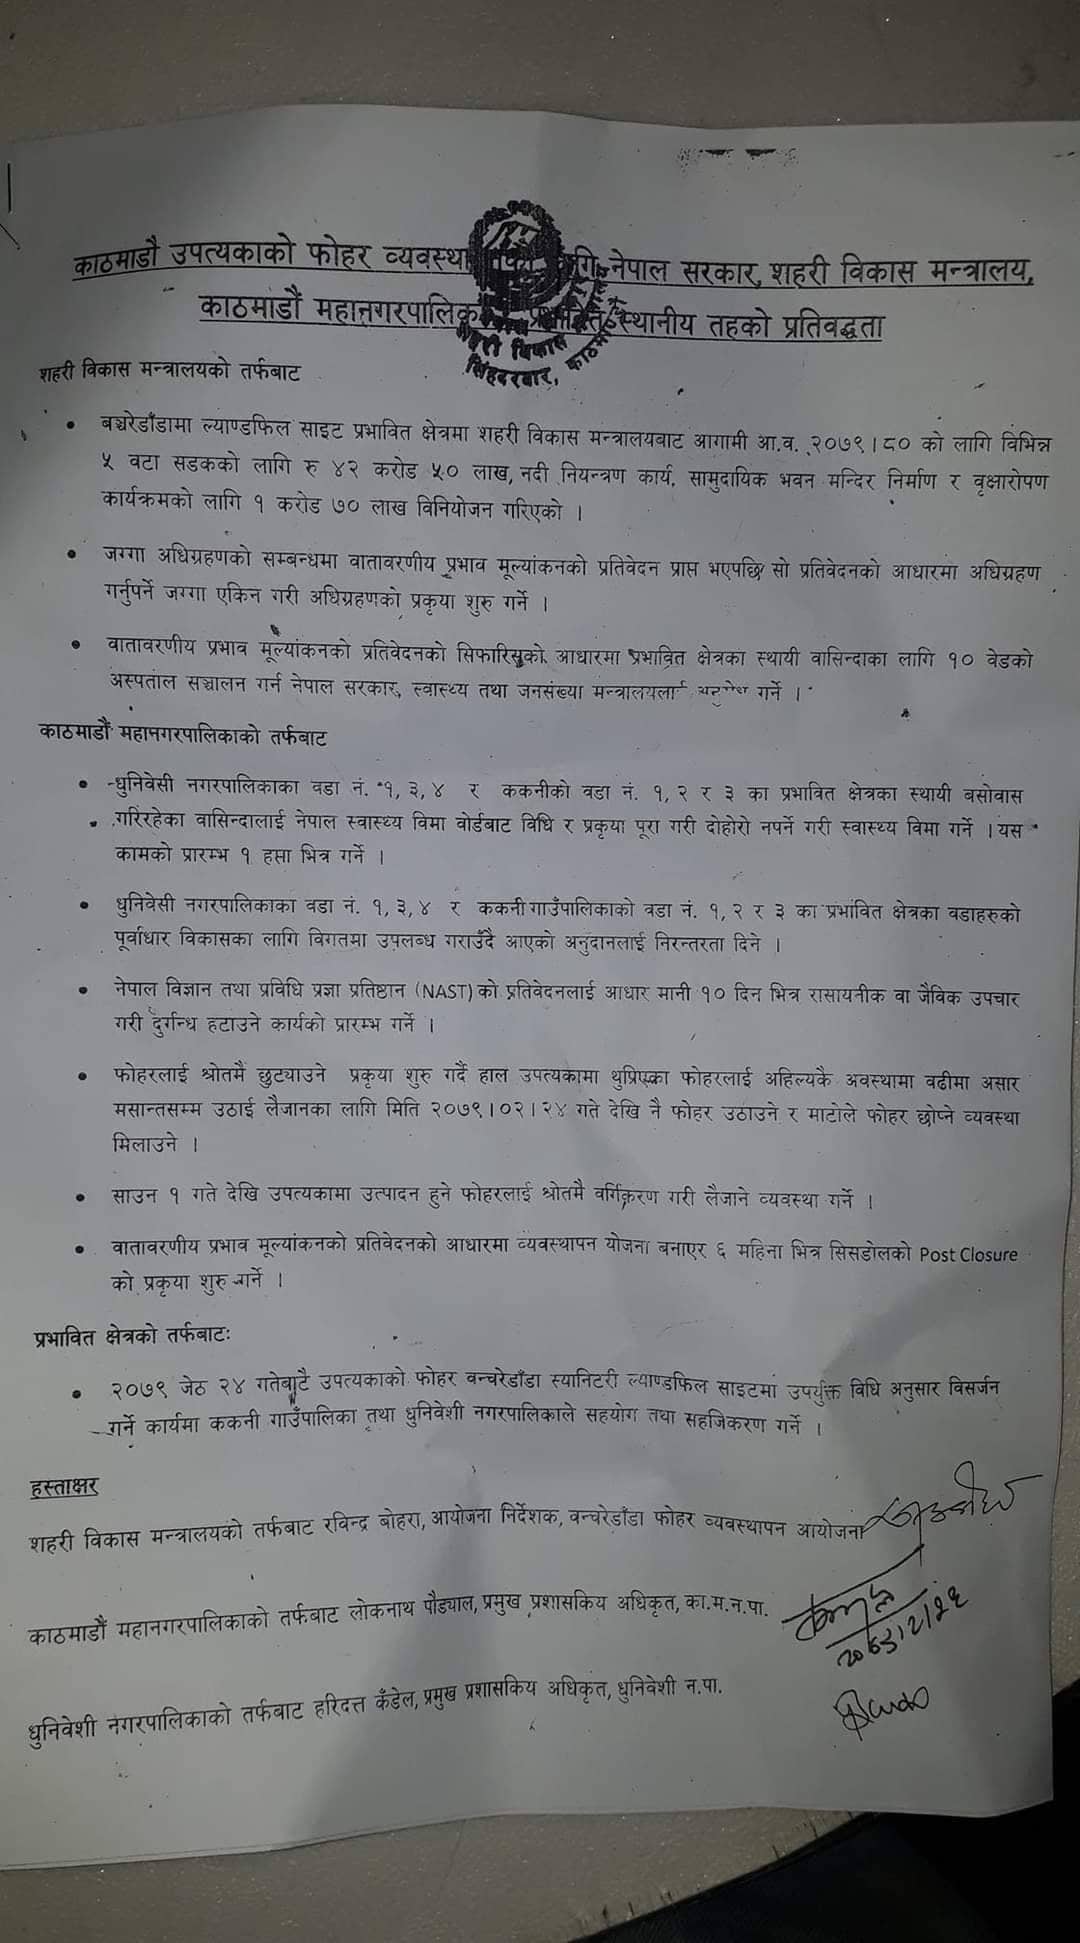 काठमाडौ उपत्यकाको फोहर व्यवस्था नेपाल सरकार, शहरी विकास मन्त्रालय,
काठमाडौं महानगरपालिका स्थानीय तहको प्रतिवद्धता
शहरी विकास
सिंहदरबार, काठमाडौं
शहरी विकास मन्त्रालयको तर्फबाट
• बञ्चरेडाँडामा ल्याण्डफिल साइट प्रभावित क्षेत्रमा शहरी विकास मन्त्रालयबाट आगामी आ.व. २०७९।८० को लागि विभिन्न
५ वटा सडकको लागि रु ४२ करोड ५० लाख, नदी नियन्त्रण कार्य, सामुदायिक भवन मन्दिर निर्माण र वृक्षारोपण
कार्यक्रमको लागि १ करोड ७० लाख विनियोजन गरिएको ।
• जग्गा अधिग्रहणको सम्बन्धमा वातावरणीय प्रभाव मूल्यांकनको प्रतिवेदन प्राप्त भएपछि सो प्रतिवेदनको आधारमा अधिग्रहण
गर्नुपर्ने जग्गा एकिन गरी अधिग्रहणको प्रकृया शुरु गर्ने ।
• वातावरणीय प्रभाव मूल्यांकनको प्रतिवेदनको सिफारिसको आधारमा प्रभावित क्षेत्रका स्थायी वासिन्दाका लागि १० वेडको
अस्पताल सञ्चालन गर्न नेपाल सरकार, स्वास्थ्य तथा जनसंख्या मन्त्रालयलाई अनुरोध गर्ने ।
काठमाडौं महानगरपालिकाको तर्फबाट
• धुनिवेसी नगरपालिकाका वडा नं. १, ३, ४ र ककनीको वडा नं. १, २ र ३ का प्रभावित क्षेत्रका स्थायी बसोवास
गरिरहेका वासिन्दालाई नेपाल स्वास्थ्य विमा वोर्डबाट विधि र प्रकृया पूरा गरी दोहोरो नपर्ने गरी स्वास्थ्य विमा गर्ने । यस
कामको प्रारम्भ १ हप्ता भित्र गर्ने ।
• धुनिवेसी नगरपालिकाका वडा नं. १, ३, ४ र ककनी गाउँपालिकाको वडा नं. १, २ र ३ का प्रभावित क्षेत्रका वडाहरुको
पूर्वाधार विकासका लागि विगतमा उपलब्ध गराउँदै आएको अनुदानलाई निरन्तरता दिने ।
• नेपाल विज्ञान तथा प्रविधि प्रज्ञा प्रतिष्ठान (NAST) को प्रतिवेदनलाई आधार मानी १० दिन भित्र रासायनीक वा जैविक उपचार
गरी दुर्गन्ध हटाउने कार्यको प्रारम्भ गर्ने ।
• फोहरलाई श्रोतमै छुट्याउने प्रकृया शुरु गर्दै हाल उपत्यकामा थुप्रिएका फोहरलाई अहिल्यकै अवस्थामा वढीमा असार
मसान्तसम्म उठाई लैजानका लागि मिति २०७९।०२।२४ गते देखि नै फोहर उठाउने र माटोले फोहर छोप्ने व्यवस्था
मिलाउने ।
• साउन १ गते देखि उपत्यकामा उत्पादन हुने फोहरलाई श्रोतमै वर्गिकरण गरी लैजाने व्यवस्था गर्ने ।
• वातावरणीय प्रभाव मूल्यांकनको प्रतिवेदनको आधारमा व्यवस्थापन योजना बनाएर ६ महिना भित्र सिसडोलको Post Closure
को प्रकृया शुरु गर्ने ।
प्रभावित क्षेत्रको तर्फबाटः
• २०७९ जेठ २४ गतेबाटै उपत्यकाको फोहर वन्चरेडाँडा स्यानिटरी ल्याण्डफिल साइटमा उपर्युक्त विधि अनुसार विसर्जन
गर्ने कार्यमा ककनी गाउँपालिका तथा धुनिवेशी नगरपालिकाले सहयोग तथा सहजिकरण गर्ने ।
हस्ताक्षर
शहरी विकास मन्त्रालयको तर्फबाट रविन्द्र बोहरा, आयोजना निर्देशक, वन्चरेडाँडा फोहर व्यवस्थापन आयोजना
काठमाडौं महानगरपालिकाको तर्फबाट लोकनाथ पौड्याल, प्रमुख प्रशासकिय अधिकृत, का.म.न.पा.
धुनिवेशी नगरपालिकाको तर्फबाट हरिदत्त कँडेल, प्रमुख प्रशासकिय अधिकृत, धुनिवेशी न.पा.